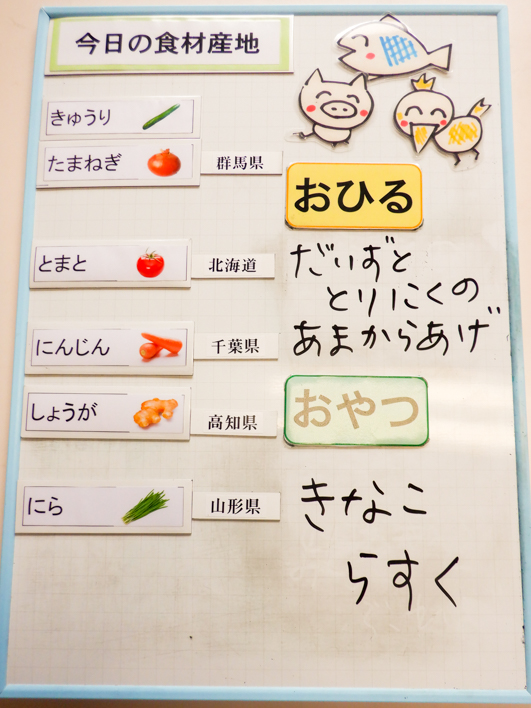 今日の食材産地
きゅうり
たまねぎ 群馬県
とまと 北海道
にんじん 千葉県
しょうが 高知県
にら 山形県
おひる
だいずと
とりにくの
あまからあげ
おやつ
きなこ
らすく